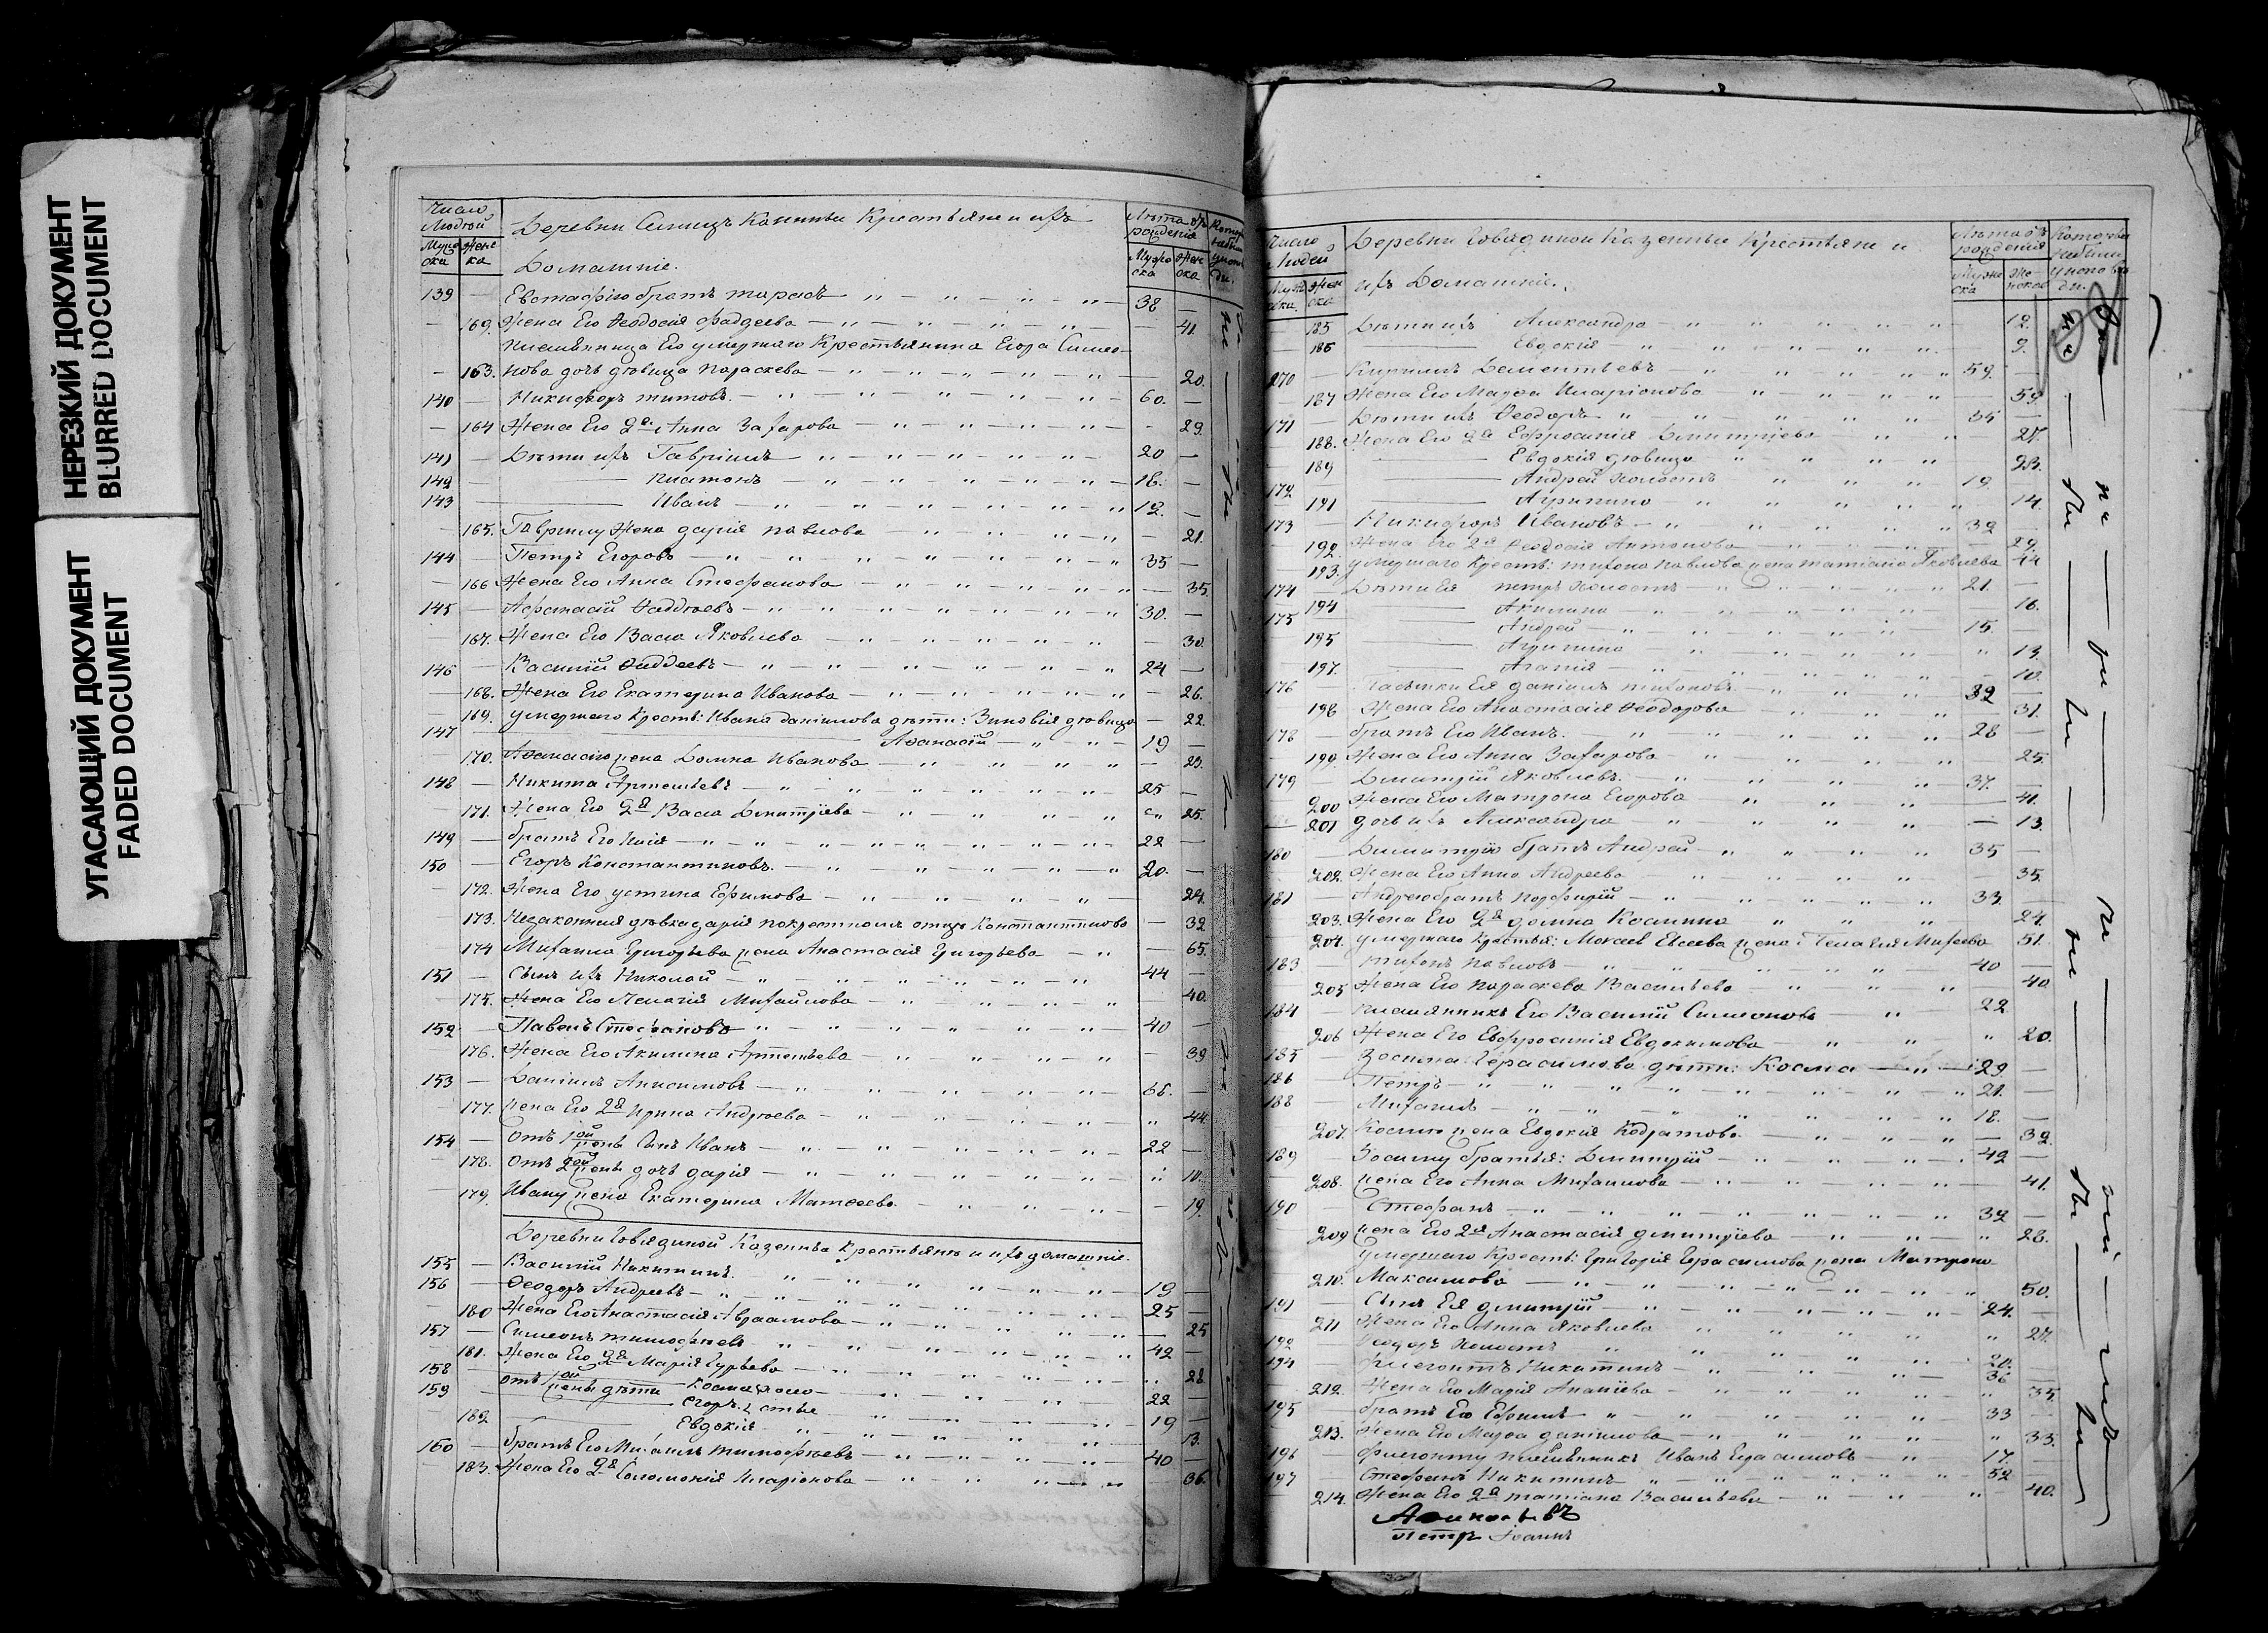 НЕРЕЗКИЙ ДОКУМЕНТ
BLURRED DOCUMENT
УГАСАЮЩИЙ ДОКУМЕНТ
FADED DOCUMENT
Число Людей
Деревни Казенныи Крестьяне и ихъ
Лѣта отъ рожденія
Мужеска Женска
Домашніе.
Мужеска Женска
139 — Евстафію братъ тарасъ 38 —
— 162. Жена Его Ѳеодосія Фадѣева — 41.
племянница Его умершаго Крестьянина Егора Симео-
— 163. нова дочь дѣвица параскева — 20.
140 — Никифоръ титовъ 60. —
— 164 Жена Его 2я Анна Захарова — 29.
141 — Дѣти ихъ Гавріилъ 20 —
142 — платонъ 16. —
143 Иванъ 12. —
— 165. Гаврилу жена дарія павлова — 21.
144 — Петръ Егоровъ 35 —
— 166 Жена Его Анна Стефанова — 35.
145 — Ѳаддѣевъ 30. —
— 167. Жена Его Васса Яковлева — 30.
146 — Василій Ѳаддеевъ 24 —
— 168. Жена Его Екатерина Иванова — 26.
— 169. умершаго Крестъ: Ивана даніилова дѣти: Зиновія дѣвица — 22.
147 — Аѳанасій 19 —
170. Аѳанасію жена Домна Иванова — 23.
148 — Никита Артемьевъ 25 —
171. Жена Его 2я Васса Димитріева 25.
149 — братъ Его Илія 22 —
150 — Егоръ Константиновъ. 20. —
— 172. Жена Его устина Ефимова 24.
— 173. Незаконная дѣвка дарія по крестномъ отцѣ Константинова — 32
174 Михаила Григорьева жена Анастасія Григорьева — 65.
151 — Сынъ ихъ Николай 44 —
— 175. Жена Его Пелагія Михайлова 40.
152 — Павелъ Стефановъ 40 —
— 176. Жена Его Акилина Артемьева — 39
153 — Даніилъ Анисимовъ 66. —
— 177. жена Его 2я Ирина Андрѣева 44
154 — отъ 1ой жены Сынъ Иванъ 22 —
178. отъ 2ой жены дочь дарія 10.
— 179. Ивану жена Екатерина Матѳеева. — 19.
Деревни Говядиной Казенные Крестьянѣ и ихъ домашніе.
155 — Василій Никитинъ. 19 —
156 — Ѳеодоръ Андреевъ 25 —
— 180 Жена Его Анастасія Авраамова — 25
157 — Симеонъ тимофеевъ 42 —
— 181. Жена Его 2я Марія Гурьева 28
158 — отъ 1ой жены дѣти Косма 22 —
159 — Егоръ 19 —
182 Евдокія 13.
160 — братъ Его Михаилъ тимофѣевъ 40 —
183. Жена Его 2я Соломонія Иларіонова — 36.
Число Людей
Деревни Говядиной Казенныи Крестьяне и
Лѣта отъ рожденія
Мужеска Женска
ихъ Домашніе.
— 185 Дѣти ихъ Александра — 12.
— 186 Евдокія 9.
170 — Кириллъ Дементьевъ 59. —
187 Жена Его Марѳа Иларіонова — 59
171 — Дѣти ихъ Ѳеодоръ 35 —
188. Жена Его 2я Ефросинія Димитріева — 27.
189 Евдокія дѣвица
172 — Андрей холостъ 19.
191 Агрипина 14.
173 — Никифоръ Ивановъ 32 —
192. Жена Его 2я Ѳеодосія Антонова — 29.
193. умершаго Крестъ: тихона павлова жена татіана Яковлева 44
174 — Дѣти Ея петръ холостъ 21. —
194 Акилина 16.
175 Андрей 15.
195 Агрипина 13.
197. Агапія 10.
176 Пасынки Ея даніилъ тихоновъ 32 —
198 Жена Его Анастасія Ѳеодорова 31.
178 — братъ Его Иванъ. 28 —
199 Жена Его Анна Захарова 25.
179 — Димитрій Яковлевъ. 37. —
200 Жена Его Матрона Егорова — 41.
— 201 дочь ихъ Александра — 13.
180 — Димитрію братъ Андрей 35 —
202. Жена Его Анна Андреева 35.
181 Андрею братъ порфирій 33. —
203. Жена Его 2я домна Космина 24.
204. умершаго Крестья: Моксея Евсеева жена Пелагія Михеева 51.
183 тихонъ павловъ 40 —
205 Жена Его параскева Васильева 40.
184 — племянникъ Его Василій Симеоновъ 22
206 Жена Его Евфросинія Евдокимова 20.
185 Зосима Герасимова дѣти: Косма 29 —
186 Петръ 21. —
188 Михаилъ 18. —
207. Космѣ жена Евдокія Кодратова — 32.
189 — Зосиму братья: Димитрій 42 —
208. жена Его Анна Михаилова — 41.
190 — Стефанъ 32 —
209 жена Его 2я Анастасія дмитріева 28.
умершаго Крестъ: Григорія Герасимова жена Матрона
210. Максимова 50.
191 — Сынъ Ея дмитрій 24. —
211 Жена Его Анна Яковлева 27.
192 — Ѳеодоръ Холостъ 20.
194 — Флегонтъ Никитинъ 36
212. Жена Его Марія Ананіева 35.
195 братъ Его Ефимъ 33 —
213. Жена Его Марѳа даніилова 33.
196 Флегонту племянникъ Иванъ Герасимовъ 17. —
197 Стефанъ Никитинъ 52
214. Жена Его 2я татіана Васильева — 40.
Петръ Іоаннъ